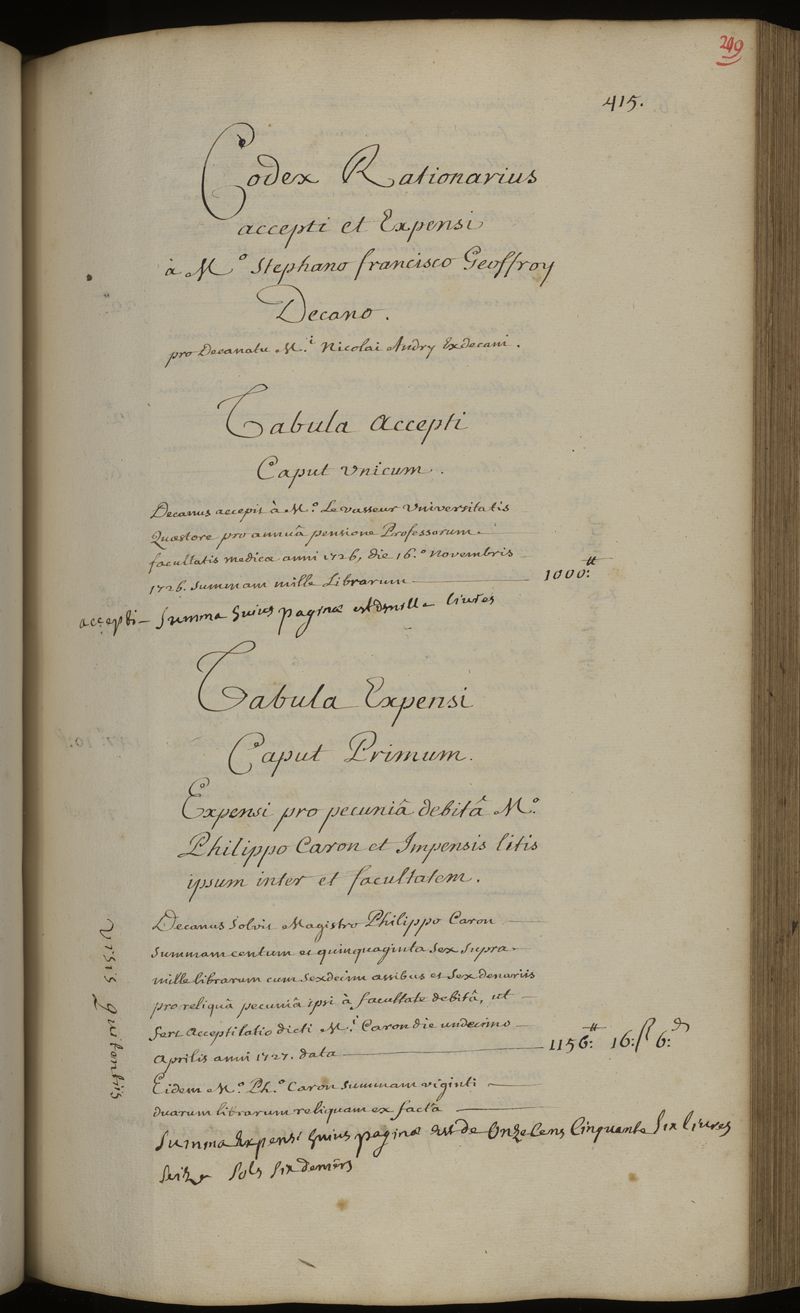 249
415.
Codex Rationarius
accepti et Expensi
à M.º Stephano francisco Geoffroy
Decano.
pro Decanatu M.i Nicolai Andry Exdecani.
Tabula accepti
Caput Unicum.
Decanus accepit à M.º Le vasseur Universitatis
Quæstore pro annuâ pensione Professorum
facultatis medicæ anni 1726, die 16.º Novembris
1726. Summam mille Librarum 1000:tt
accepti - Summa huius paginæ est de mille livres
Tabula Expensi
Caput Primum.
Expensi pro pecuniâ debitâ M.º
Philippo Caron et Impensis litis
ipsum inter et facultatem.
Decanus Solvit Magistro Philippo Caron
Summam centum et quinquaginta Sex Supra
mille librarum cum Sexdecim assibus et Sex denariis
pro reliquâ pecuniâ ipsi à facultate debitâ, ut
fert acceptilatio dicti M.i Caron die undecimo
Aprilis anni 1727. data 1156:tt 16:s 6:d
Eidem M.º Ph.º Caron Summam viginti
duarum librarum reliquam ex factâ
Summa Expensi huius paginæ est de Onze Cens Cinquante Six livres
Seize Sols Six deniers
visis quitantiis